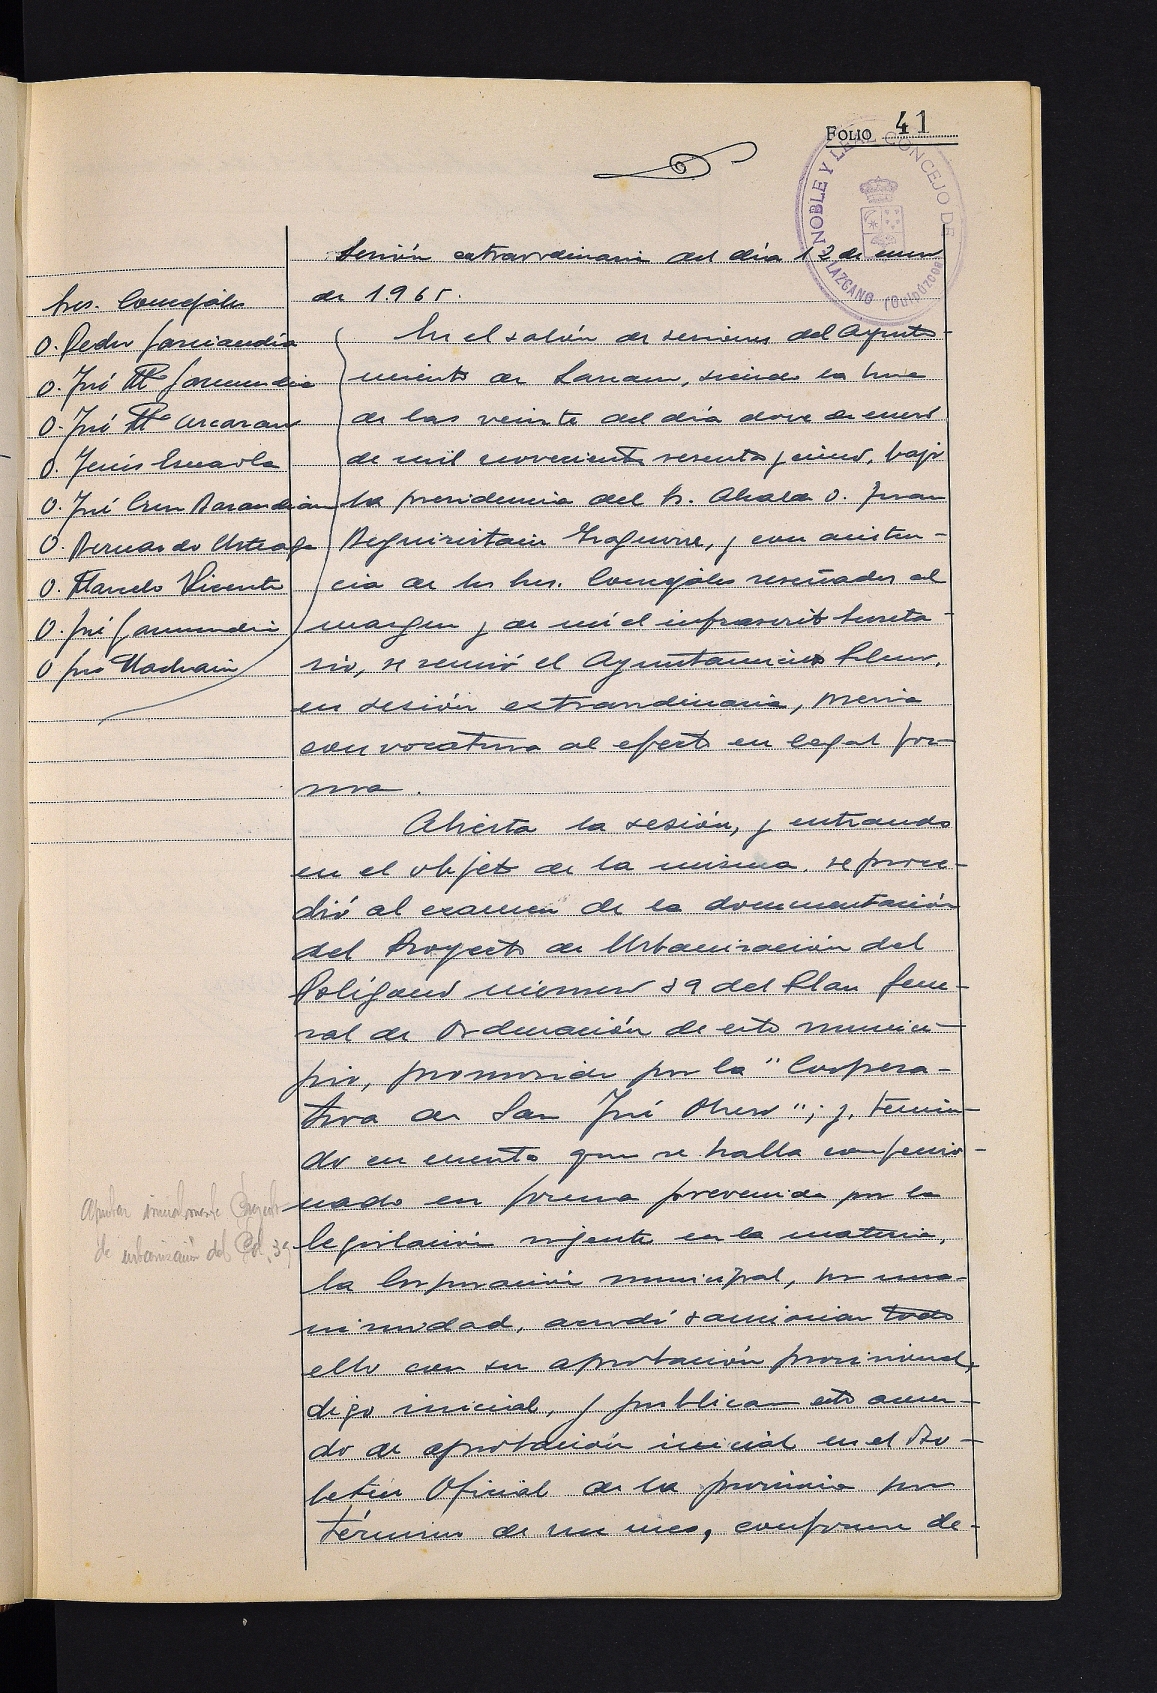 FOLIO 41
NOBLE Y LEAL CONCEJO DE LAZCANO (Guipúzcoa)
Sesión extraordinaria del día 12 de enero
de 1.965.
Sres. Concejales
D. Pedro Garciandia
D. José Mª Garmendia
D. José Mª Ascarasu
D. Jesús
D. José Cruz Barandiaran
D. Bernardo Urteaga
D. Marcelo Vicente
D. José Garmendia
D. José
En el salón de sesiones del Ayunta-
miento de Lazcano, siendo la hora
de las veinte del día doce de enero
de mil novecientos sesenta y cinco, bajo
la presidencia del Sr. Alcalde D. Juan
Beguiristain, y con asisten-
cia de los Sres. Concejales reseñados al
margen y de mí el infrascrito Secreta-
rio, se reunió el Ayuntamiento Pleno,
en sesión extraordinaria, previa
convocatoria al efecto en legal for-
ma.
Abierta la sesión, y entrando
en el objeto de la misma, se proce-
dió al examen de la documentación
del Proyecto de Urbanización del
Polígono número 39 del Plan Gene-
ral de Ordenación de este munici-
pio, promovido por la "Coopera-
tiva de San José Obrero"; y, tenien-
do en cuenta que se halla confeccio-
nado en forma prevenida por la
legislación vigente en la materia,
la Corporación municipal, por una-
nimidad, acordó sancionar todo
ello con su aprobación provisional,
digo inicial, y publicar este acuer-
do de aprobación inicial en el Bo-
letín Oficial de la provincia por
término de un mes, conforme de-
Aprobar inicialmente Proyecto
de urbanización del Pol. 39